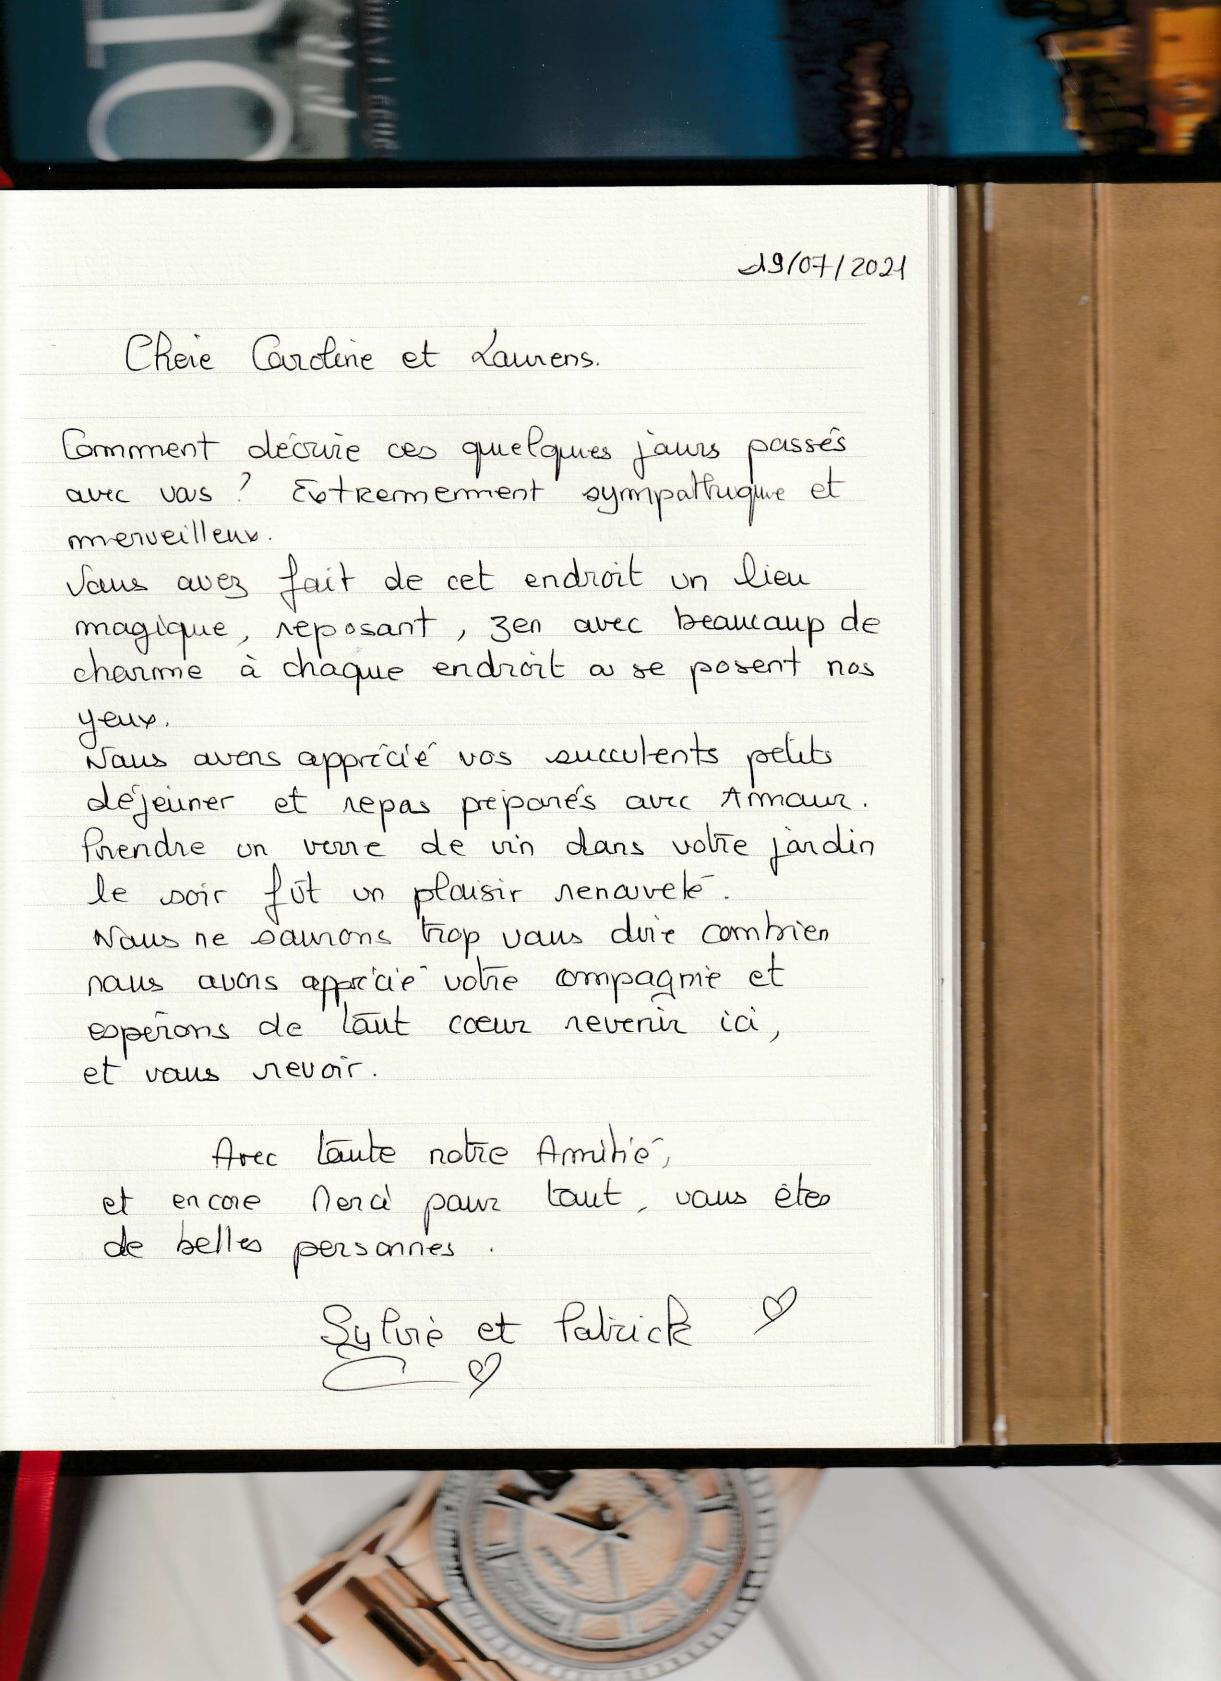 19/07/2021
Chère Caroline et Laurens.
Comment décrire ces quelques jours passés
avec vous ? Extrêmement sympathique et
merveilleux.
Vous avez fait de cet endroit un lieu
magique, reposant, zen avec beaucoup de
charme à chaque endroit où se posent nos
yeux.
Nous avons apprécié vos succulents petits
déjeuner et repas préparés avec Amour.
Prendre un verre de vin dans votre jardin
le soir fût un plaisir renouvelé.
Nous ne saurons trop vous dire combien
nous avons apprécié votre compagnie et
espérons de tout coeur revenir ici,
et vous revoir.
Avec toute notre Amitié,
et encore Merci pour tout, vous êtes
de belles personnes.
Sylvie et Patrick